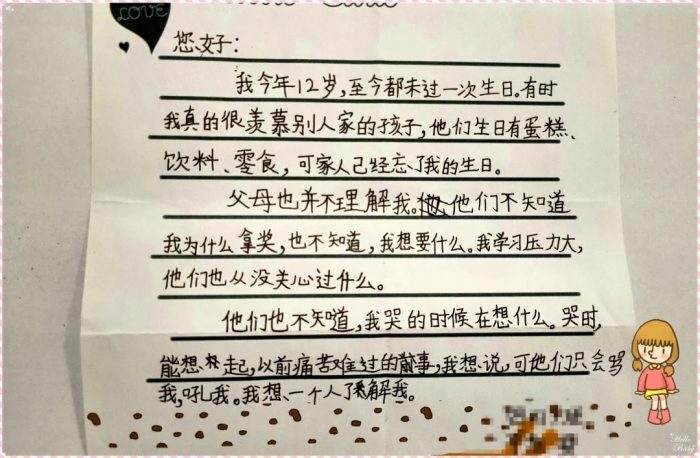 LOVE
您好：
我今年12岁，至今都未过一次生日。有时
我真的很羡慕别人家的孩子，他们生日有蛋糕、
饮料、零食，可家人已经忘了我的生日。
父母也并不理解我。他们不知道
我为什么拿奖，也不知道，我想要什么。我学习压力大，
他们也从没关心过什么。
他们也不知道，我哭的时候在想什么。哭时，
能想起，以前痛苦难过的故事，我想说，可他们只会骂
我，吼我。我想一个人了解我。
Hello
Baby